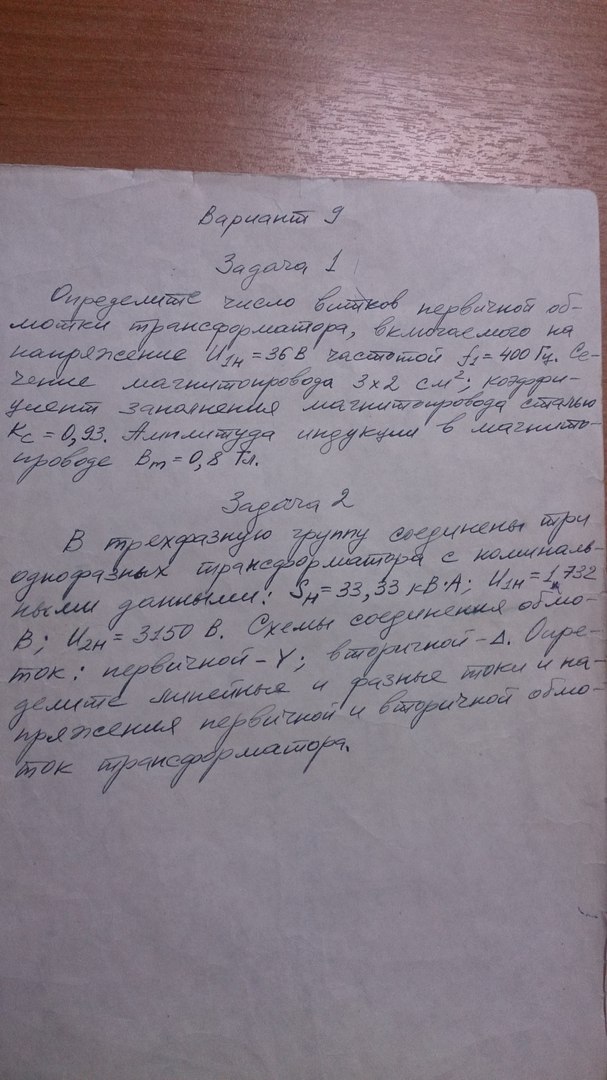 Вариант 9
Задача 1
Определите число витков первичной об-
мотки трансформатора, включаемого на
напряжение U1н = 36 В частотой f1 = 400 Гц. Се-
чение магнитопровода 3 x 2 см²; коэффи-
циент заполнения магнитопровода сталью
Kc = 0,93. Амплитуда индукции в магнито-
проводе Bm = 0,8 Тл.
Задача 2
В трехфазную группу соединены три
однофазных трансформатора с номиналь-
ными данными: Sн = 33,33 кВ·А; U1н = 1,732
В; U2н = 3150 В. Схемы соединения обмо-
ток: первичной - Y; вторичной - Δ. Опре-
делите линейные и фазные токи и на-
пряжения первичной и вторичной обмо-
ток трансформатора.